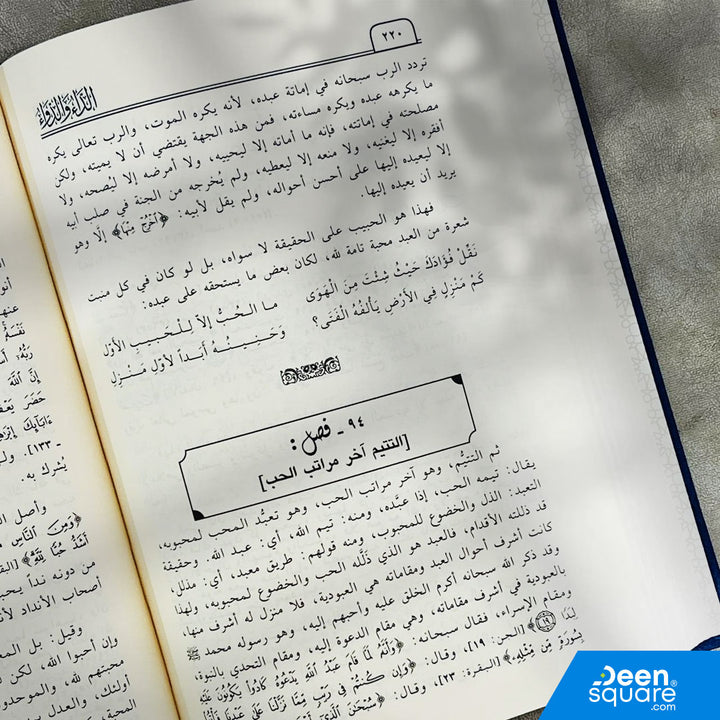 ٢٢٠
الداء والدواء
تردد الرب سبحانه في إماتة عبده، لأنه يكره الموت، والرب تعالى يكره
ما يكرهه عبده ويكره مساءته، فمن هذه الجهة يقتضي أن لا يميته، ولكن
مصلحته في إماتته، فإنه ما أماته إلا ليحييه، ولا أمرضه إلا ليُصحه، ولا
أفقره إلا ليغنيه، ولا منعه إلا ليعطيه، ولم يُخرجه من الجنة في صلب أبيه
إلا ليعيده إليها على أحسن أحواله، ولم يقل لأبيه: ﴿أَخْرُجْ مِنْهَا﴾ إلّا وهو
يريد أن يعيده إليها.
فهذا هو الحبيب على الحقيقة لا سواه، بل لو كان في كل منبت
شعرة من العبد محبة تامة لله، لكان بعض ما يستحقه على عبده:
نَقِّلْ فُؤَادَكَ حَيْثُ شِئْتَ مِنَ الْهَوَى ما الـحُبُّ إلاّ لِلْحَبِيبِ الأوَّلِ
كَمْ مَنزِلٍ فِي الأَرْضِ يَأْلفُهُ الْفَتَى؟ وَحَنِينُهُ أَبَداً لأوَّلِ مَنْزِلِ
٩٤ - فصل:
[التتيم آخر مراتب الحب]
ثم التتيُّم، وهو آخر مراتب الحب، وهو تعبُّد المحب لمحبوبه،
يقال: تيمه الحب، إذا عبَّده، ومنه: تيم الله، أي: عبد الله. وحقيقة
التعبد: الذل والخضوع للمحبوب، ومنه قولهم: طريق معبد، أي: مذلل،
قد ذللته الأقدام، فالعبد هو الذي ذَلَّله الحب والخضوع لمحبوبه، ولهذا
كانت أشرف أحوال العبد ومقاماته هي العبودية، فلا منزل له أشرف منها،
وقد ذكر الله سبحانه أكرم الخلق عليه وأحبهم إليه، وهو رسوله محمد ﷺ
بالعبودية في أشرف مقاماته، وهي مقام الدعوة إليه، ومقام التحدي بالنبوة،
ومقام الإسراء، فقال سبحانه: ﴿وَأَنَّهُ لَمَّا قَامَ عَبْدُ اللَّهِ يَدْعُوهُ كَادُوا يَكُونُونَ عَلَيْهِ
لِبَدًا ١٩﴾ [الجن: ١٩]، وقال: ﴿وَإِن كُنتُمْ فِي رَيْبٍ مِّمَّا نَزَّلْنَا عَلَىٰ عَبْدِنَا فَأْتُوا
بِسُورَةٍ مِّن مِّثْلِهِ﴾ [البقرة: ٢٣]، وقال: ﴿سُبْحَٰنَ الَّذِي
- ١٣٣]
يُشرك به.
وأصل
﴿وَمِنَ النَّاسِ
أَشَدُّ حُبًّا لِلَّهِ﴾
من دونه نداً
أصحاب الأنداد
وقيل: بل
وإن أحبوا الله، لكن
محبتهم لله، والموحدو
أولئك، والعدل
Deen
square®
.com